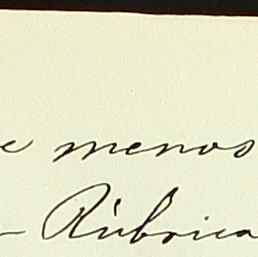 e menos
- Rúbrica